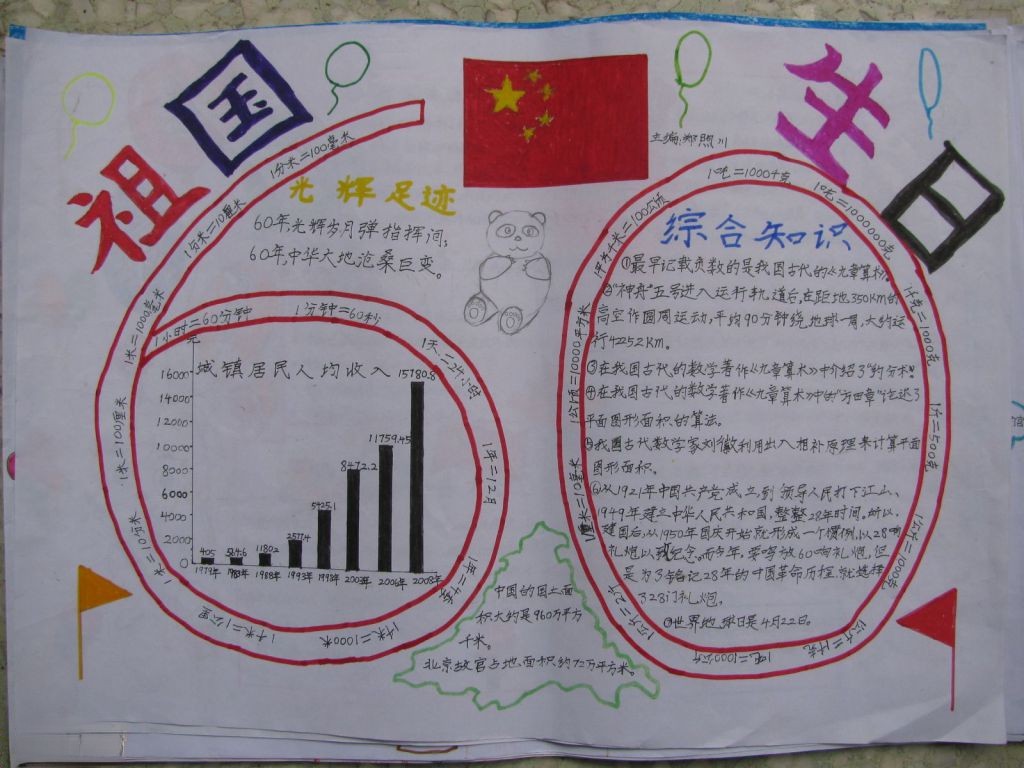 祖国
生日
主编:郑煦川
光辉足迹
60年,光辉岁月弹指挥间,
60年,中华大地沧桑巨变。
1分米=100毫米
1分米=10厘米
1米=1000毫米
1米=100厘米
1米=10分米
1千米=1公里
1千米=1000米
1小时=60分钟
1分钟=60秒
1天=24小时
1年=12月
城镇居民人均收入
元
16000
14000
12000
10000
8000
6000
4000
2000
0
405
1180.2
2577.4
5425.1
8472.2
11759.45
15780.8
1979年
1983年
1988年
1993年
1998年
2003年
2006年
2008年
中国的国土面
积大约是960万平方
千米。
北京故宫占地面积约72万平方米。
综合知识
①最早记载负数的是我国古代的《九章算术》。
②"神舟"五号进入运行轨道后,在距地350KM的
高空作圆周运动,平均90分钟绕地球一周,大约运
行42252KM。
③在我国古代的数学著作《九章算术》中介绍了"约分术"
④在我国古代的数学著作《九章算术》中的"方田章"论述了
平面图形面积的算法。
⑤我国古代数学家刘徽利用出入相补原理来计算平面
图形面积。
⑥从1921年中国共产党成立到领导人民打下江山、
1949年建立中华人民共和国,整整28年时间。所以,
建国后,从1950年国庆开始就形成一个惯例,以28响
礼炮以致纪念。而今年,要鸣放60响礼炮,但
是为了铭记28年的中国革命历程,就选择
了28门礼炮。
⑦世界地球日是4月22日。
1吨=1000千克
1吨=1000000克
1千克=1000克
1斤=500克
1公斤=1000克
1公斤=1千克
1吨=1000公斤
1公斤=2斤
1厘米=10毫米
1公顷=10000平方米
1平方千米=100公顷